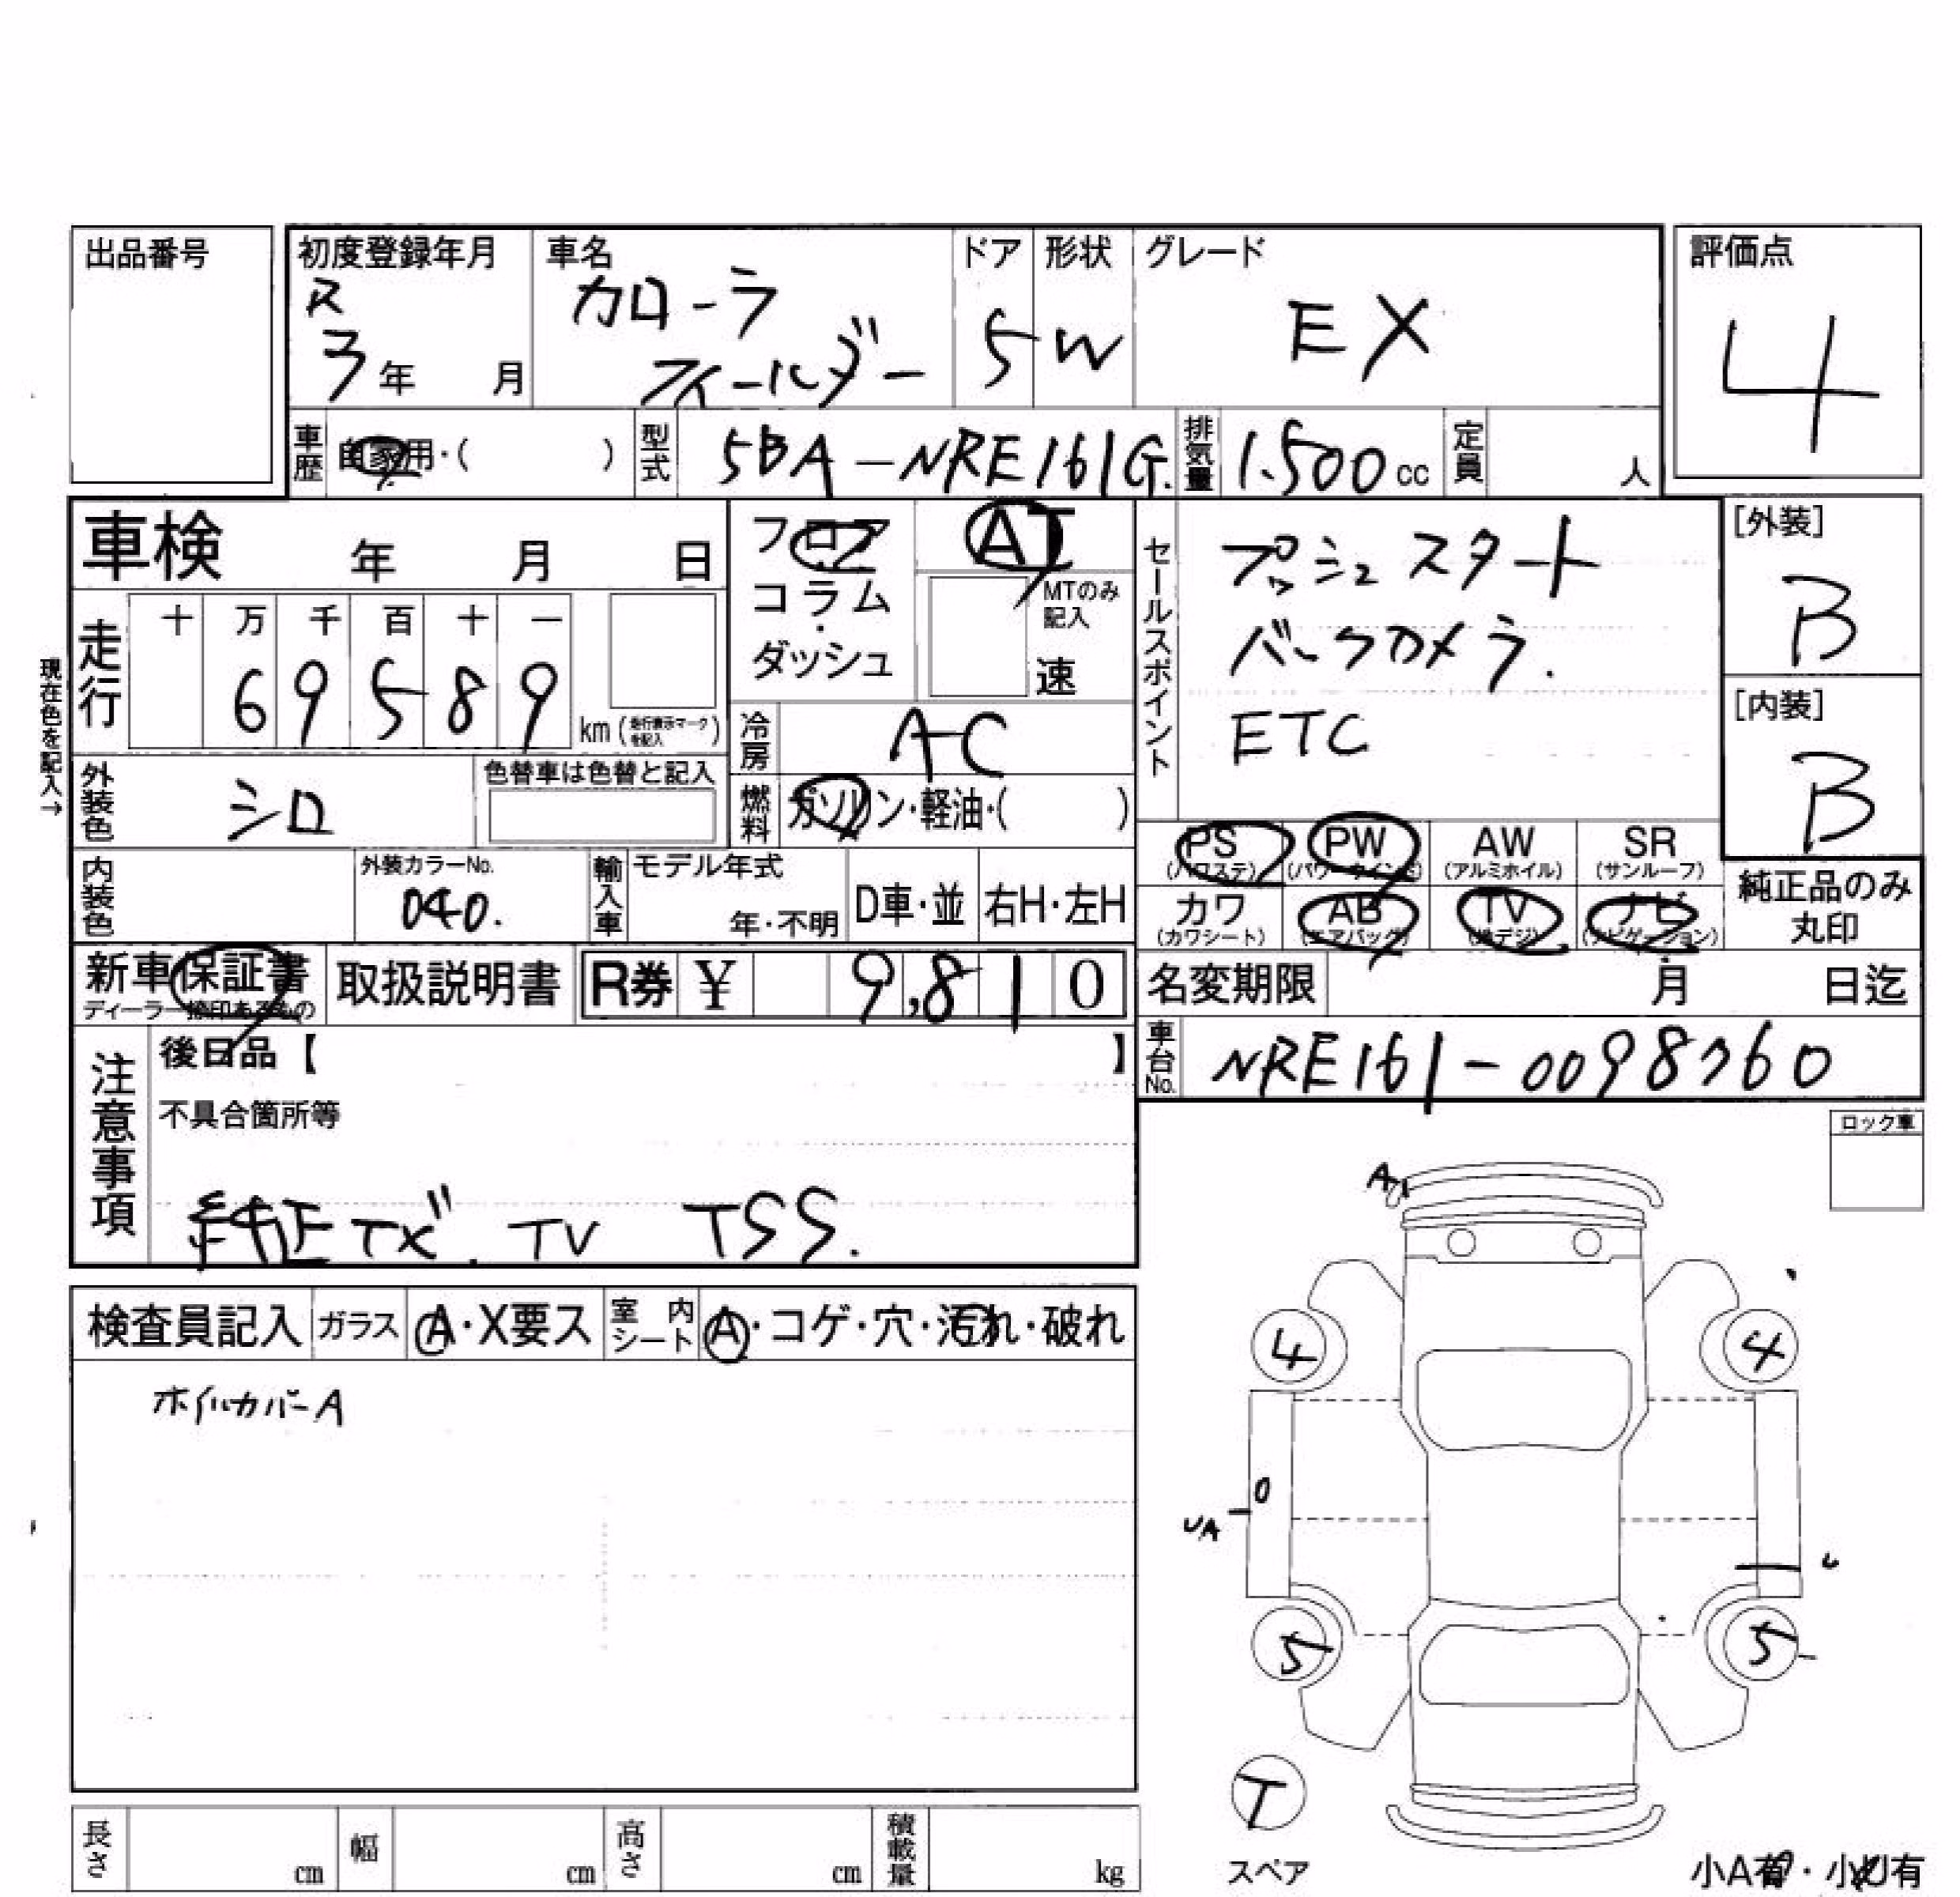 出品番号
初度登録年月 車名 ドア 形状 グレード 評価点
R 3年 月 カローラ 5 W EX 4
フィールダー
車歴 自家用・( ) 型式 5BA-NRE161G. 排気量 1.500cc 定員 人
車検 年 月 日
フロア AT
コラム・ MTのみ記入
ダッシュ 速
セールスポイント
プッシュスタート
バックカメラ.
ETC
[外装]
B
[内装]
B
現在色を記入→
走行 十 万 千 百 十 一
6 9 5 8 9 km (走行表示マークを記入)
冷房 AC
外装色 シロ 色替車は色替と記入
燃料 ガソリン・軽油・( )
PS PW AW SR
(パワステ) (パワーウインド) (アルミホイル) (サンルーフ)
カワ AB TV ナビ
(カワシート) (エアバッグ) (地デジ) (ナビゲーション)
純正品のみ
丸印
内装色 外装カラーNo. 040. 輸入車 モデル年式 年・不明 D車・並 右H・左H
新車保証書 取扱説明書 R券 ¥ 9,810
ディーラー捺印あるもの
名変期限 月 日迄
車台No. NRE161-0098760
注意事項
後日品【 】
不具合箇所等
純正ナビ. TV TSS.
ロック車
検査員記入 ガラス A・X要ス 室内シート A・コゲ・穴・汚れ・破れ
ホイルカバーA
A1
4 4
0
UA
U
5 5
T
スペア
長さ cm 幅 cm 高さ cm 積載量 kg
小A有・小U有